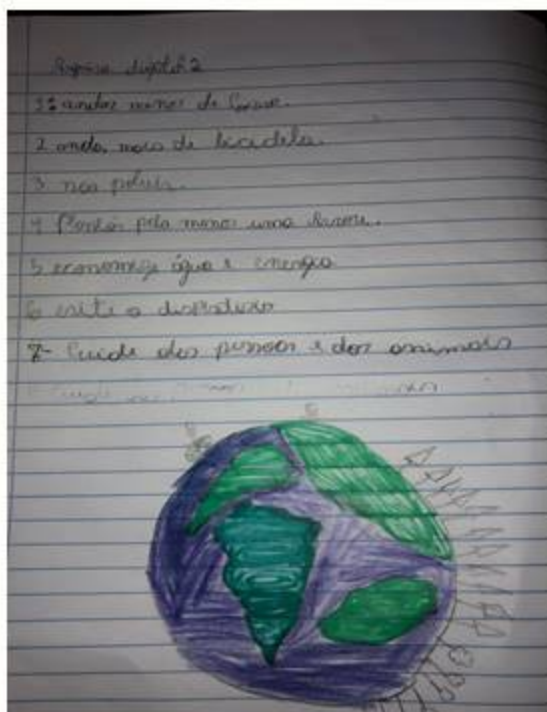 1º andar menos de
2 ande mais de bicicleta.
3 não poluir.
4 Plantar pelo menos uma árvore.
5 economize água e energia
6 evite o disperdicio
7- Cuide das pessoas e dos animais